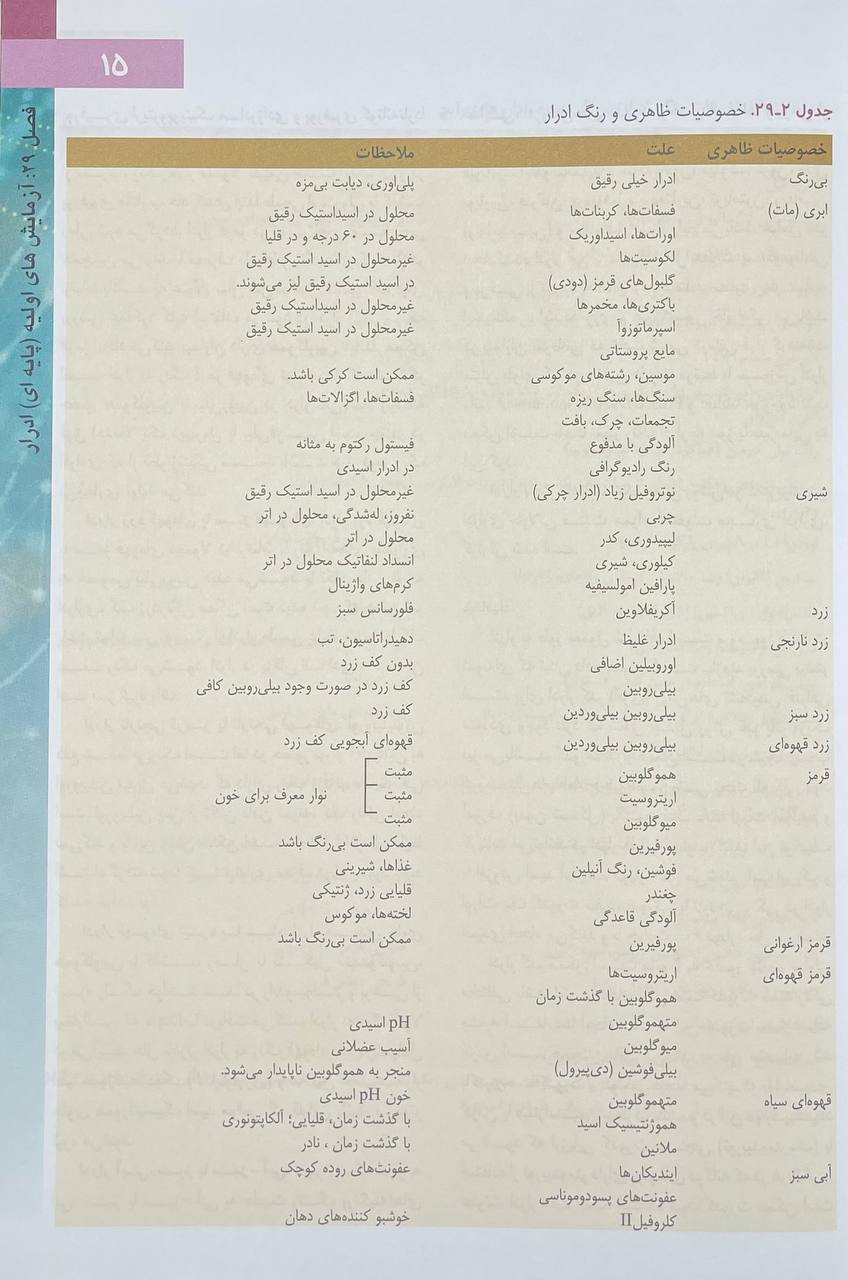 ۱۵
فصل ۲۹: آزمایش های اولیه (پایه ای) ادرار
جدول ۲-۲۹. خصوصیات ظاهری و رنگ ادرار
خصوصیات ظاهری علت ملاحظات
بی‌رنگ ادرار خیلی رقیق پلی‌اوری، دیابت بی‌مزه
ابری (مات) فسفات‌ها، کربنات‌ها محلول در اسیداستیک رقیق
اورات‌ها، اسیداوریک محلول در ۶۰ درجه و در قلیا
لکوسیت‌ها غیرمحلول در اسید استیک رقیق
گلبول‌های قرمز (دودی) در اسید استیک رقیق لیز می‌شوند.
باکتری‌ها، مخمرها غیرمحلول در اسیداستیک رقیق
اسپرماتوزوآ غیرمحلول در اسید استیک رقیق
مایع پروستاتی
موسین، رشته‌های موکوسی ممکن است کرکی باشد.
سنگ‌ها، سنگ ریزه فسفات‌ها، اگزالات‌ها
تجمعات، چرک، بافت
آلودگی با مدفوع فیستول رکتوم به مثانه
رنگ رادیوگرافی در ادرار اسیدی
شیری نوتروفیل زیاد (ادرار چرکی) غیرمحلول در اسید استیک رقیق
چربی نفروز، له‌شدگی، محلول در اتر
لیپیدوری، کدر محلول در اتر
کیلوری، شیری انسداد لنفاتیک محلول در اتر
پارافین امولسیفیه کرم‌های واژینال
زرد آکریفلاوین فلورسانس سبز
زرد نارنجی ادرار غلیظ دهیدراتاسیون، تب
اوروبیلین اضافی بدون کف زرد
بیلی‌روبین کف زرد در صورت وجود بیلی‌روبین کافی
زرد سبز بیلی‌روبین بیلی‌وردین کف زرد
زرد قهوه‌ای بیلی‌روبین بیلی‌وردین قهوه‌ای آبجویی کف زرد
قرمز هموگلوبین مثبت
اریتروسیت مثبت نوار معرف برای خون
میوگلوبین مثبت
پورفیرین ممکن است بی‌رنگ باشد
فوشین، رنگ آنیلین غذاها، شیرینی
چغندر قلیایی زرد، ژنتیکی
آلودگی قاعدگی لخته‌ها، موکوس
قرمز ارغوانی پورفیرین ممکن است بی‌رنگ باشد
قرمز قهوه‌ای اریتروسیت‌ها
هموگلوبین با گذشت زمان
متهموگلوبین pH اسیدی
میوگلوبین آسیب عضلانی
بیلی‌فوشین (دی‌پیرول) منجر به هموگلوبین ناپایدار می‌شود.
قهوه‌ای سیاه متهموگلوبین خون pH اسیدی
هموژنتیسیک اسید با گذشت زمان، قلیایی؛ آلکاپتونوری
ملانین با گذشت زمان ، نادر
آبی سبز ایندیکان‌ها عفونت‌های روده کوچک
عفونت‌های پسودوموناسی
کلروفیل II خوشبو کننده‌های دهان